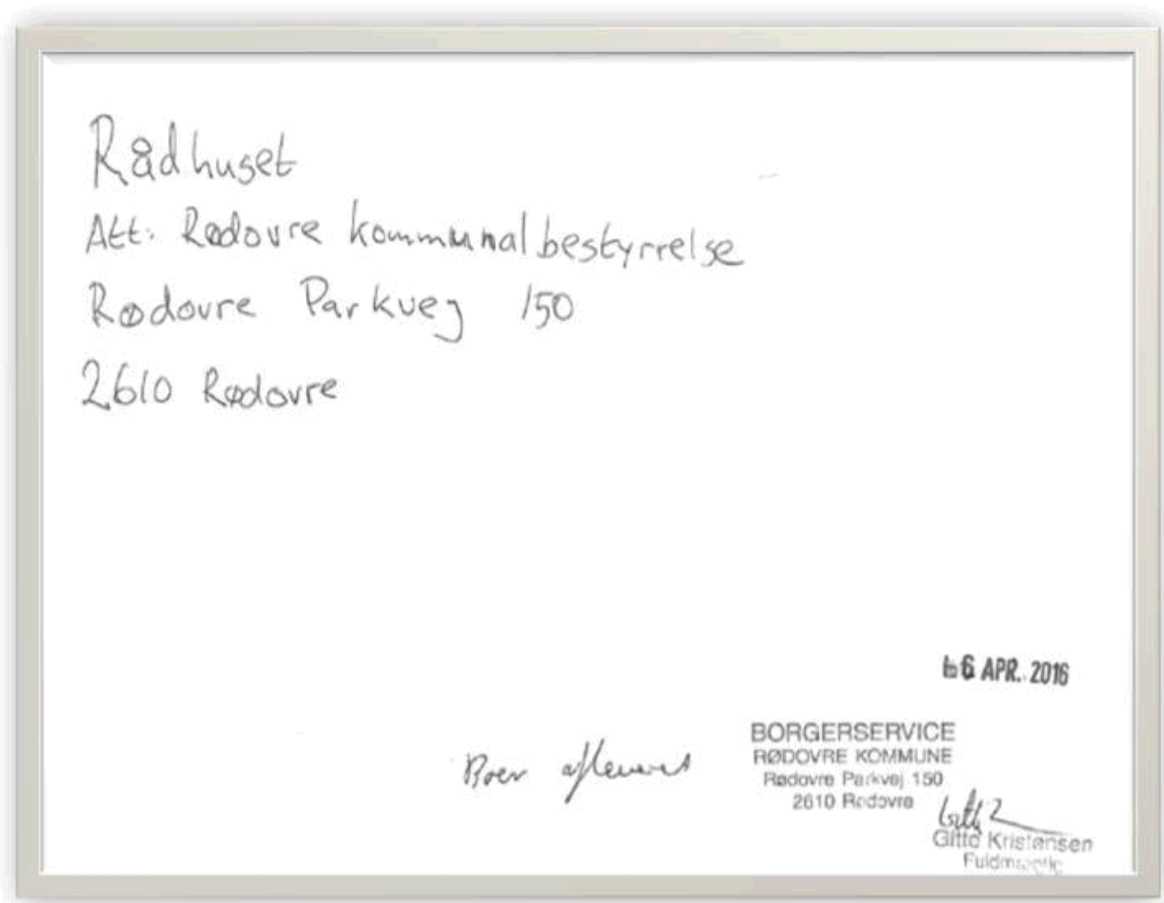 Rådhuset
Att: Rødovre kommunalbestyrrelse
Rødovre Parkvej 150
2610 Rødovre
6 APR. 2016
afleveret
BORGERSERVICE
RØDOVRE KOMMUNE
Rødovre Parkvej 150
2610 Rødovre
Gitte Kristensen